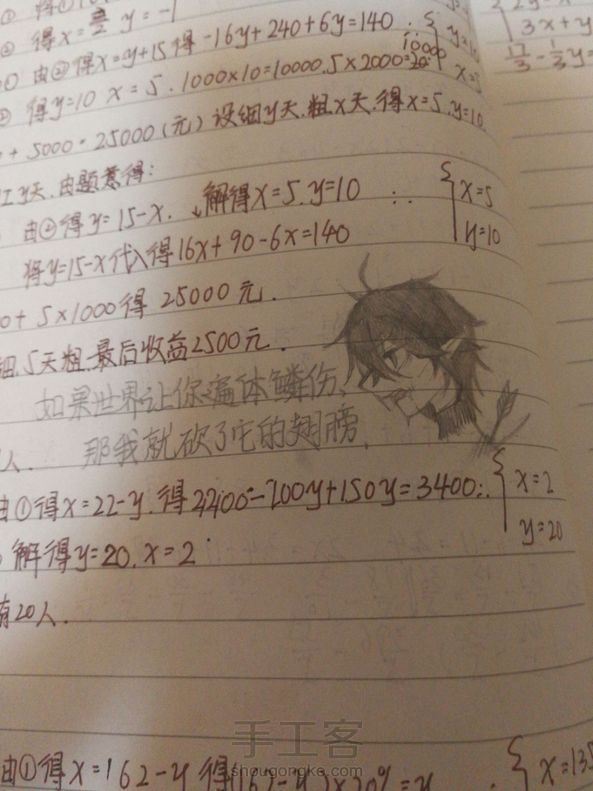 得x= y=-1
由②得x=y+15得-16y+240+6y=140 ∴ { y=10
得y=10 x=5. 1000×10=10000. 5×2000= x=5
10000
+5000=25000(元)设细y天,粗x天,得x=5,y=10
y天,由题意得:
由②得y=15-x. 解得x=5,y=10 ∴ { x=5
y=10
将y=15-x代入得16x+90-6x=140
0+5×1000得25000元.
细,5天粗,最后收益2500元.
如果世界让你遍体鳞伤、
那我就砍了它的翅膀.
人.
由①得x=22-y.得4400-200y+150y=3400∴ { x=2
y=20
解得y=20,x=2
有20人.
由①得x=162-y得(162-y)×20 =y
3x+y
17/3-1/3y=
手工客
shougongke.com